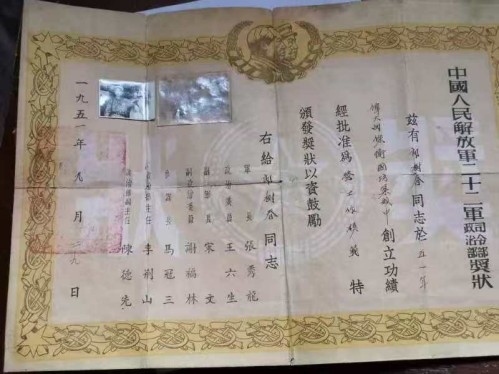 中國人民解放軍二十二軍司令部政治部獎狀
兹有 樹 同志於 五一年
中 創立功績
經批准為 工作模範 特
頒發獎狀以資鼓勵
右給 樹 同志
軍長 張秀龍
政治委員 王六生
副軍長 宋文
副政治委員 謝福林
參謀長 馬冠三
政治部主任 李荆山
政治部副主任 陳德先
一九五一年九月 九日